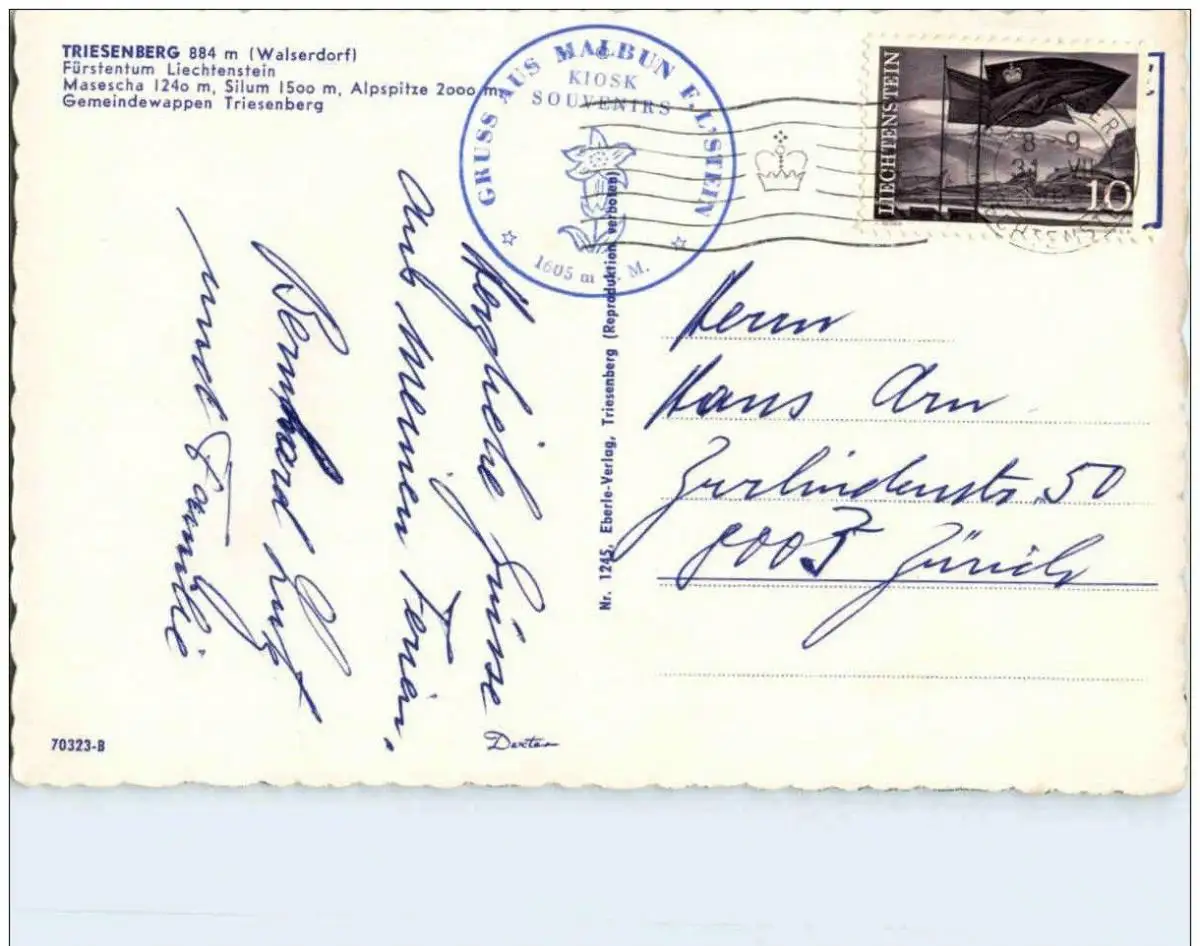 TRIESENBERG 884 m (Walserdorf)
Fürstentum Liechtenstein
Masescha 1240 m, Silum 1500 m, Alpspitze 2000 m,
Gemeindewappen Triesenberg
GRUSS AUS MALBUN F. L'STEIN
KIOSK
SOUVENIRS
1605 m M.
LIECHTENSTEIN
10
8-9
31. VII
Herzliche Grüsse
aus meinen Ferien.
Bernhard
und Familie
Nr. 1245, Eberle-Verlag, Triesenberg (Reproduktion verboten)
Herrn
Hans Arn
Zurlindenstr. 50
8003 Zürich
70323-B
Dexter